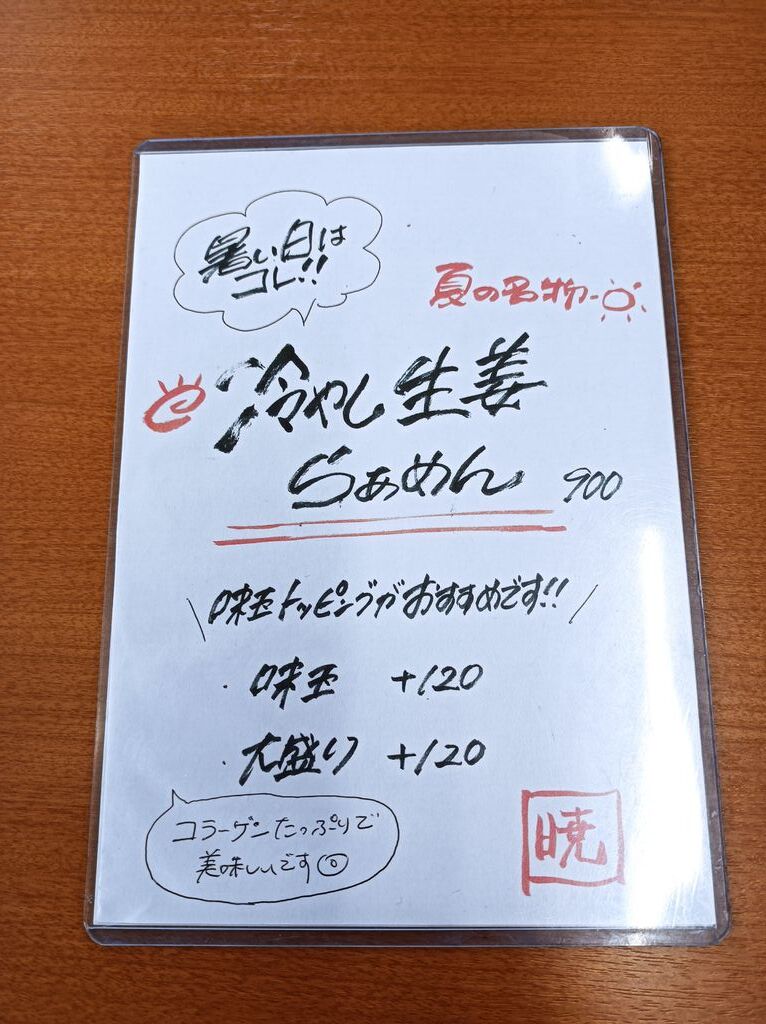 暑い日は
コレ!!
夏の名物
冷やし生姜
らぁめん 900
\味玉トッピングがおすすめです!!/
・味玉 +120
・大盛り +120
コラーゲンたっぷりで
美味しいです
暁